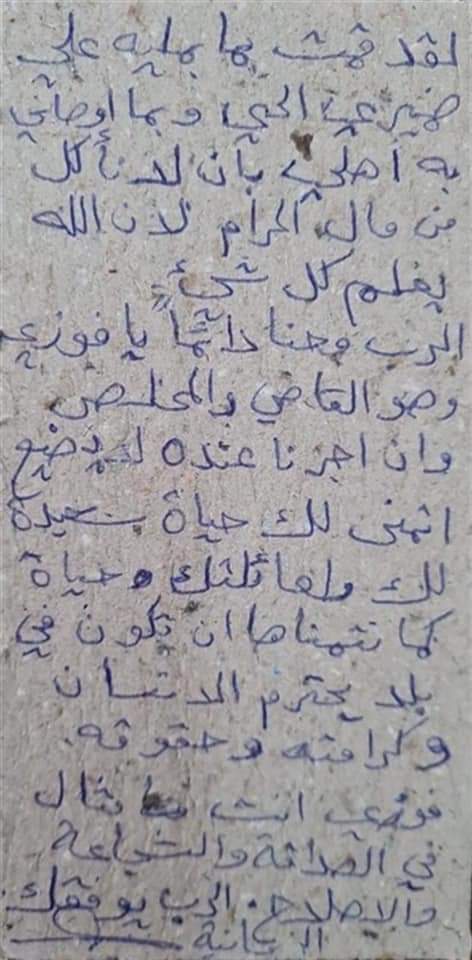 لقد قمت بما يمليه علي
ضميري الحي وبما أوصاني
به أهلي بأن لا نأكل
من مال الحرام لان الله
يعلم كل شيءٍ
الرب معنا دائماً يا فوزي
وهو القاضي والمخلص
وان اجرنا عنده لا يضيع
اتمنى لك حياة سعيدة
لك ولعائلتك وحياة
كما نتمناها ان تكون في
بلد يحترم الانسان
وكرامته وحقوقه.
فوزي انت مثال
في الصداقة والشجاعة
والاصلاح. الرب يوفقك